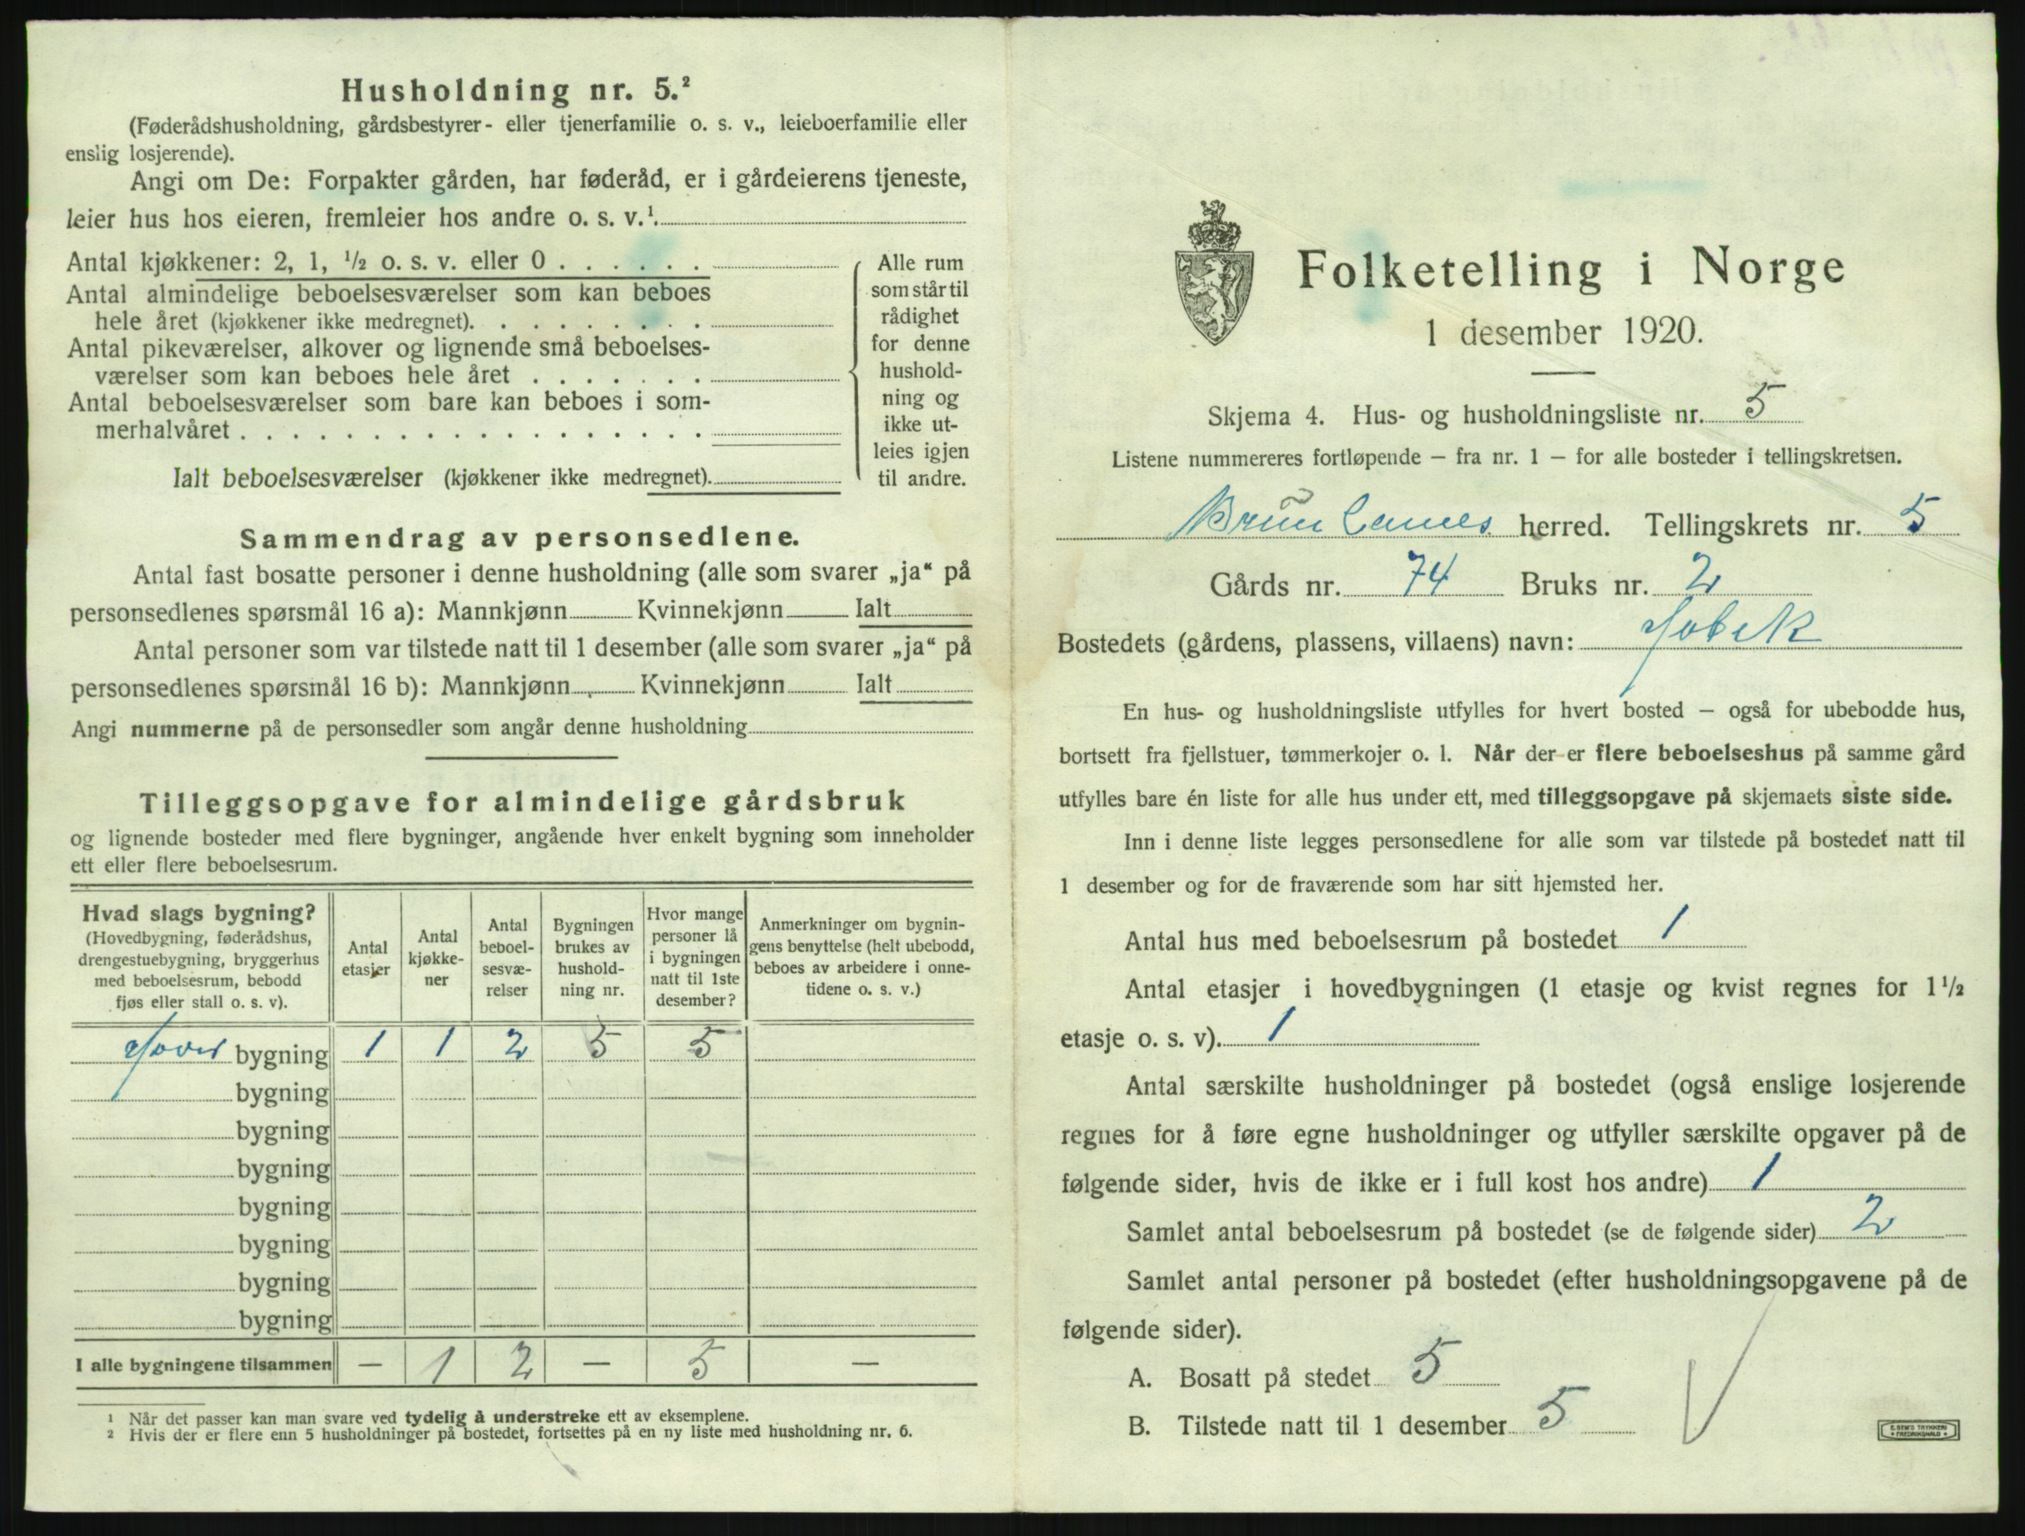 Husholdning nr. 5.²
(Føderådshusholdning, gårdsbestyrer- eller tjenerfamilie o. s. v., leieboerfamilie eller
enslig losjerende).
Angi om De: Forpakter gården, har føderåd, er i gårdeierens tjeneste,
leier hus hos eieren, fremleier hos andre o. s. v.¹.
Antal kjøkkener: 2, 1, ½ o. s. v. eller 0 . . . . . .
Antal almindelige beboelsesværelser som kan beboes
hele året (kjøkkener ikke medregnet). . . . . . . . .
Antal pikeværelser, alkover og lignende små beboelses-
værelser som kan beboes hele året . . . . . . .
Antal beboelsesværelser som bare kan beboes i som-
merhalvåret . . . . . . . . . . . . . . . . . .
Ialt beboelsesværelser (kjøkkener ikke medregnet).
Alle rum
som står til
rådighet
for denne
hushold-
ning og
ikke ut-
leies igjen
til andre.
Sammendrag av personsedlene.
Antal fast bosatte personer i denne husholdning (alle som svarer „ja“ på
personsedlenes spørsmål 16 a): Mannkjønn Kvinnekjønn Ialt
Antal personer som var tilstede natt til 1 desember (alle som svarer „ja“ på
personsedlenes spørsmål 16 b): Mannkjønn Kvinnekjønn Ialt
Angi nummerne på de personsedler som angår denne husholdning
Tilleggsopgave for almindelige gårdsbruk
og lignende bosteder med flere bygninger, angående hver enkelt bygning som inneholder
ett eller flere beboelsesrum.
Hvad slags bygning?
(Hovedbygning, føderådshus,
drengestuebygning, bryggerhus
med beboelsesrum, bebodd
fjøs eller stall o. s. v).
Antal
etasjer
Antal
kjøkke-
ner
Antal
beboel-
sesvæ-
relser
Bygningen
brukes av
hushold-
ning nr.
Hvor mange
personer lå
i bygningen
natt til 1ste
desember?
Anmerkninger om bygnin-
gens benyttelse (helt ubebodd,
beboes av arbeidere i onne-
tidene o. s. v.)
bygning 1 1 2 5 5
bygning
bygning
bygning
bygning
bygning
bygning
bygning
I alle bygningene tilsammen — 1 2 — 5 —
¹ Når det passer kan man svare ved tydelig å understreke ett av eksemplene.
² Hvis der er flere enn 5 husholdninger på bostedet, fortsettes på en ny liste med husholdning nr. 6.
Folketelling i Norge
1 desember 1920.
Skjema 4. Hus- og husholdningsliste nr. 5
Listene nummereres fortløpende – fra nr. 1 – for alle bosteder i tellingskretsen.
Brunlanes herred. Tellingskrets nr. 5
Gårds nr. 74 Bruks nr. 2
Bostedets (gårdens, plassens, villaens) navn:
En hus- og husholdningsliste utfylles for hvert bosted – også for ubebodde hus,
bortsett fra fjellstuer, tømmerkojer o. l. Når der er flere beboelseshus på samme gård
utfylles bare én liste for alle hus under ett, med tilleggsopgave på skjemaets siste side.
Inn i denne liste legges personsedlene for alle som var tilstede på bostedet natt til
1 desember og for de fraværende som har sitt hjemsted her.
Antal hus med beboelsesrum på bostedet 1
Antal etasjer i hovedbygningen (1 etasje og kvist regnes for 1½
etasje o. s. v). 1
Antal særskilte husholdninger på bostedet (også enslige losjerende
regnes for å føre egne husholdninger og utfyller særskilte opgaver på de
følgende sider, hvis de ikke er i full kost hos andre) 1
Samlet antal beboelsesrum på bostedet (se de følgende sider) 2
Samlet antal personer på bostedet (efter husholdningsopgavene på de
følgende sider).
A. Bosatt på stedet 5
B. Tilstede natt til 1 desember 5